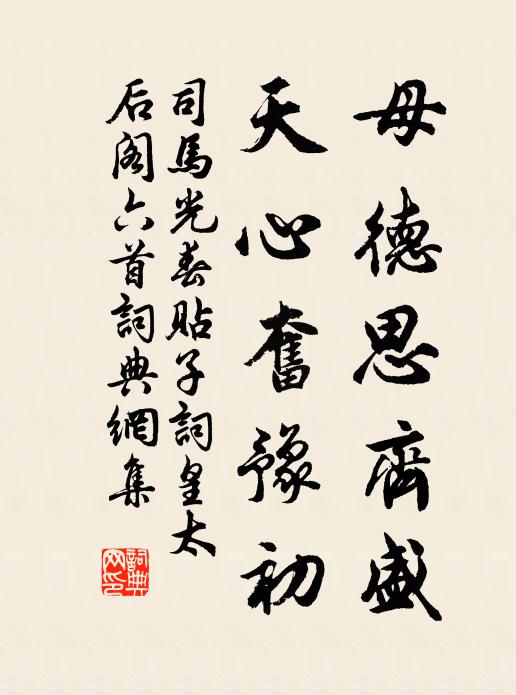 毋德思齊盛
天心奮豫初
司馬光春貼子詞皇太
后阁六首詞典網集
詞典网印